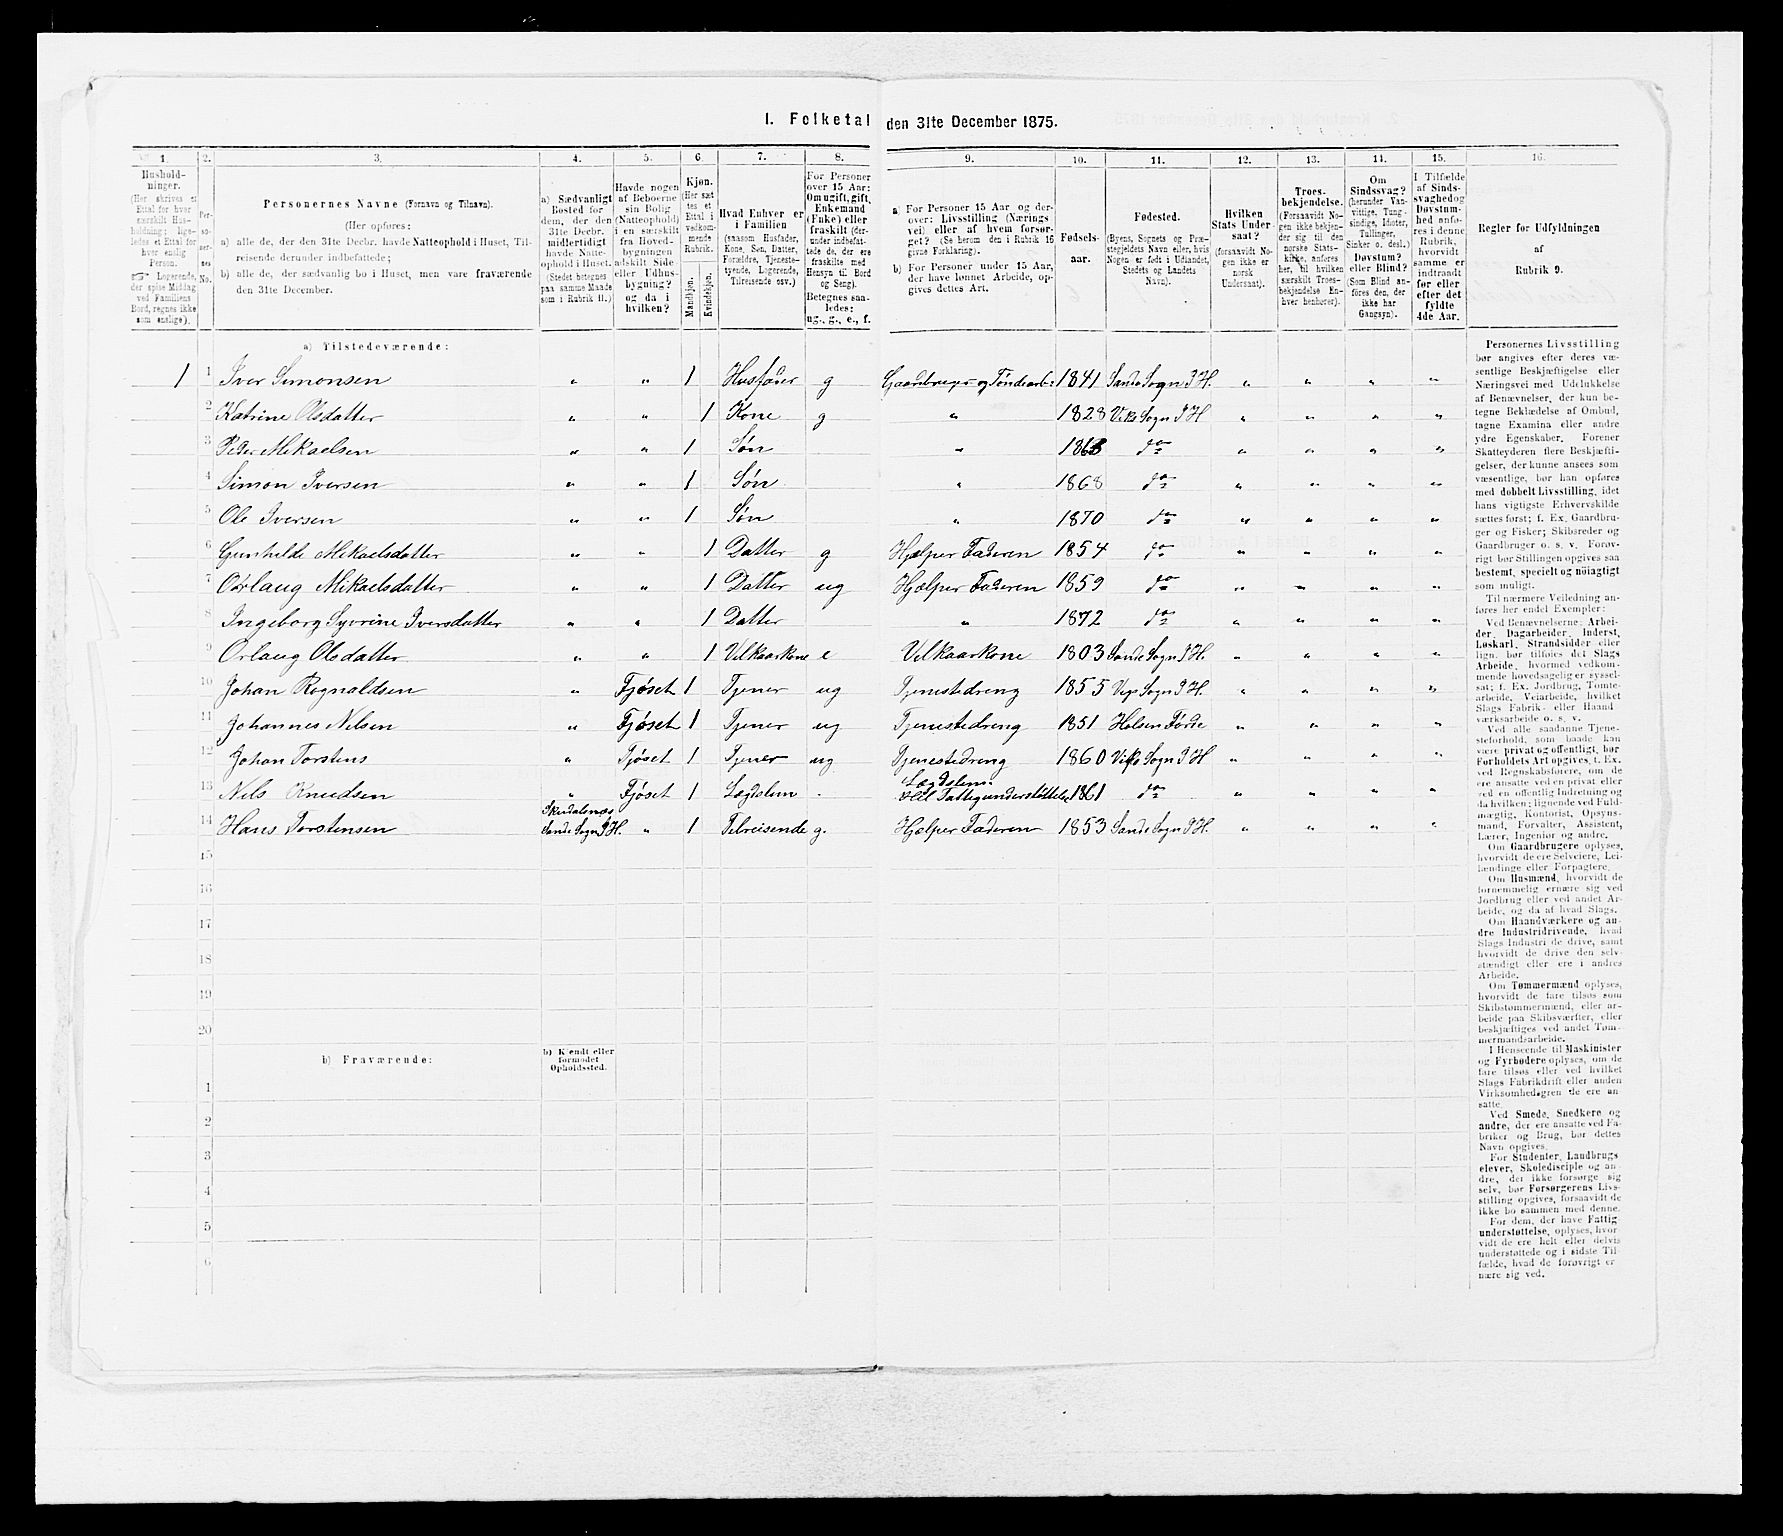 I. Folketal den 31te December 1875.
1. 2. 3. 4. 5. 6. 7. 8. 9. 10. 11. 12. 13. 14. 15. 16.
Husholdninger.
(Her skrives et Ettal for hver særskilt Husholdning; ligeledes et Ettal for hver enslig Person.
☞ Logerende, der spise Middag ved Familiens Bord, regnes ikke som enslige).
Personernes No.
Personernes Navne (Fornavn og Tilnavn).
(Her opføres:
a) alle de, der den 31te Decbr. havde Natteophold i Huset, Tilreisende derunder indbefattede;
b) alle de, der sædvanlig bo i Huset, men vare fraværende den 31te December.
a) Sædvanligt Bosted for dem, der den 31te Decbr. midlertidigt havde Natteophold i Huset.
(Stedet betegnes paa samme Maade som i Rubrik 11.)
Havde nogen af Beboerne sin Bolig (Natteophold) i en særskilt fra Hovedbygningen adskilt Side eller Udhusbygning? og da i hvilken?
Kjøn.
(Her sættes et Ettal i vedkommende Rubrik.
Mandkjøn. Kvindekjøn.
Hvad Enhver er i Familien
(saasom Husfader, Kone, Søn, Datter, Forældre, Tjenestetyende, Logerende, Tilreisende osv.)
For Personer over 15 Aar: Om ugift, gift, Enkemand (Enke) eller fraskilt (derunder indbefattede de, der ere fraskilte med Hensyn til Bord og Seng).
Betegnes saaledes: ug., g., e., f.
a) For Personer 15 Aar og derover: Livsstilling (Næringsvei) eller af hvem forsørget? (Se herom den i Rubrik 16 givne Forklaring).
b) For Personer under 15 Aar, der have lønnet Arbeide, opgives dettes Art.
Fødselsaar.
Fødested.
(Byens, Sognets og Præstegjeldets Navn eller, hvis Nogen er født i Udlandet, Stedets og Landets Navn).
Hvilken Stats Undersaat?
(forsaavidt Nogen ikke er norsk Undersaat).
Troesbekjendelse.
(Forsaavidt Nogen ikke bekjender sig til den norske Statskirke, anføres her, til hvilken særskilt Troesbekjendelse Enhver henhører).
Om Sindssvag? (herunder Vanvittige, Tungsindige, Idioter, Tullinger, Sinker o. desl.) Døvstum? eller Blind? (Som Blind anføres den, der ikke har Gangsyn).
I Tilfælde af Sindssvaghed og Døvstumhed anføres i denne Rubrik, hvorvidt samme er indtraadt før eller efter det fyldte 4de Aar.
Regler for Udfyldningen
af
Rubrik 9.
a) Tilstedeværende:
1 1 Iver Simonsen „ „ 1 Husfader g Gaardbruger og Tøndearb: 1841 Sande Sogn I H. „ „ „ „
2 Katrine Olsdatter „ „ 1 Kone g „ 1828 Viks Sogn I H „ „ „ „
3 Peder Mikaelsen „ „ 1 Søn „ 1863 do „ „ „ „
4 Simon Iversen „ „ 1 Søn „ 1868 do „ „ „ „
5 Ole Iversen „ „ 1 Søn „ 1870 do „ „ „ „
6 Gunhilde Mikaelsdatter „ „ 1 Datter g Hjælper Faderen 1854 do „ „ „ „
7 Orlaug Mikaelsdatter „ „ 1 Datter ug Hjælper Faderen 1859 do „ „ „ „
8 Ingeborg Syvrine Iversdatter „ „ 1 Datter „ 1872 do „ „ „ „
9 Orlaug Olsdatter „ „ 1 Vilkaarkone e Vilkaarkone 1803 Sande Sogn I H. „ „ „ „
10 Johan Rognaldsen „ Fjøset 1 Tjener ug Tjenestedreng 1855 Viks Sogn I H. „ „ „ „
11 Johannes Nilsen „ Fjøset 1 Tjener ug Tjenestedreng 1851 Holsen Førde „ „ „ „
12 Johan Torstens „ Fjøset 1 Tjener ug Tjenestedreng 1860 Viks Sogn I H „ „ „ „
13 Nils Knudsen „ Fjøset 1 Lægdslem . Lægdslem: Hel Fattigunderstøttelse 1861 do „ „ „ „
14 Hans Torstensen Sande Sogn I H. „ 1 Tilreisende g. Hjælper Faderen 1853 Sande Sogn I H. „ „ „ „
15
16
17
18
19
20
b) Fraværende:
b) Kjendt eller formodet Opholdssted.
1
2
3
4
5
6
Personernes Livsstilling
bør angives efter deres væ-
sentlige Beskjæftigelse eller
Næringsvei med Udelukkelse
af Benævnelser, der kun be-
tegne Beklædelse af Ombud,
tagne Examina eller andre
ydre Egenskaber. Forener
Skatteyderen flere Beskjæfti-
gelser, der kunne ansees som
væsentlige, bør han opføres
med dobbelt Livsstilling, idet
hans vigtigste Erhvervskilde
sættes først; f. Ex. Gaardbru-
ger og Fisker; Skibsreder og
Gaardbruger o. s. v. Forøv-
rigt bør Stillingen opgives saa
bestemt, specielt og nöiagtigt
som muligt.
Til nærmere Veiledning an-
føres her endel Exempler:
Ved Benævnelserne: Arbei-
der, Dagarbeider, Inderst,
Løskarl, Strandsidder eller
lign. bør tilføies det Slags
Arbeide, hvormed vedkom-
mende hovedsagelig er syssel-
sat; f. Ex. Jordbrug, Tomte-
arbeide, Veiarbeide, hvilket
Slags Fabrik- eller Haand-
værksarbeide o. s. v.
Ved alle saadanne Tjene-
steforhold, som baade kan
være privat og offentligt, bør
Forholdets Art opgives, f. Ex.
ved Regnskabsførere, om de
ere ansatte ved en privat eller
ved en offentlig Indretning og
da hvilken; lignende ved Fuld-
mægtig, Kontorist, Opsyns-
mand, Forvalter, Assistent,
Lærer, Ingeniør og andre.
Om Gaardbrugere oplyses,
hvorvidt de ere Selveiere, Lei-
lændinge eller Forpagtere.
Om Husmænd, hvorvidt de
fornemmelig ernære sig ved
Jordbrug eller ved andet Ar-
beide, og da af hvad Slags.
Om Haandværkere og an-
dre Industridrivende, hvad
Slags Industri de drive, samt
hvorvidt de drive den selv-
stændigt eller ere i andres
Arbeide.
Om Tømmermænd oplyses,
hvorvidt de fare tilsøs som
Skibstømmermænd, eller ar-
beide paa Skibsværfter, eller
beskjæftiges ved andet Tøm-
mermandsarbeide.
I Henseende til Maskinister
og Fyrbødere oplyses, om de
fare tilsøs eller ved hvilket
Slags Fabrikdrift eller anden
Virksomhedsgren de ere an-
satte.
Ved Smede, Snedkere og
andre, der ere ansatte ved Fa-
briker og Brug, bør dettes
Navn opgives.
For Studenter, Landbrugs-
elever, Skoledisciple og an-
dre, der ikke forsørge sig
selv, bør Forsørgerens Livs-
stilling opgives, forsaavidt de
ikke bo sammen med denne.
For dem, der have Fattig-
understøttelse, oplyses, hvor-
vidt de ere helt eller delvis
understøttede og i sidste Til-
fælde, hvad de forøvrigt er-
nære sig ved.